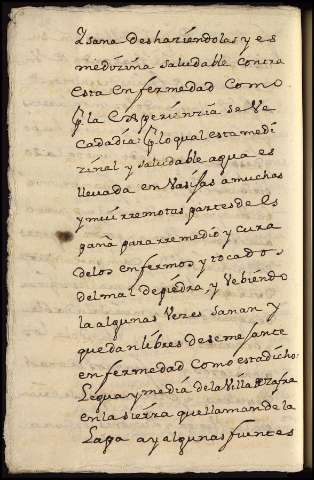 Y sana deshaziendolas y es
medizina saludable contra
esta enfermedad como
por la experienzia se ve
cada dia: por lo qual esta medi
zinal y saludable agua es
llevada en vasijas a muchas
y mui rremotas partes de Es
paña para rremedio y cura
de los enfermos y tocados
del mal de piedra, y vebiendo
la algunas vezes sanan y
quedan libres de semejante
enfermedad como esta dicho.
Legua y media de la villa de zafra
en la sierra que llaman de la
Lapa ay algunas fuentes